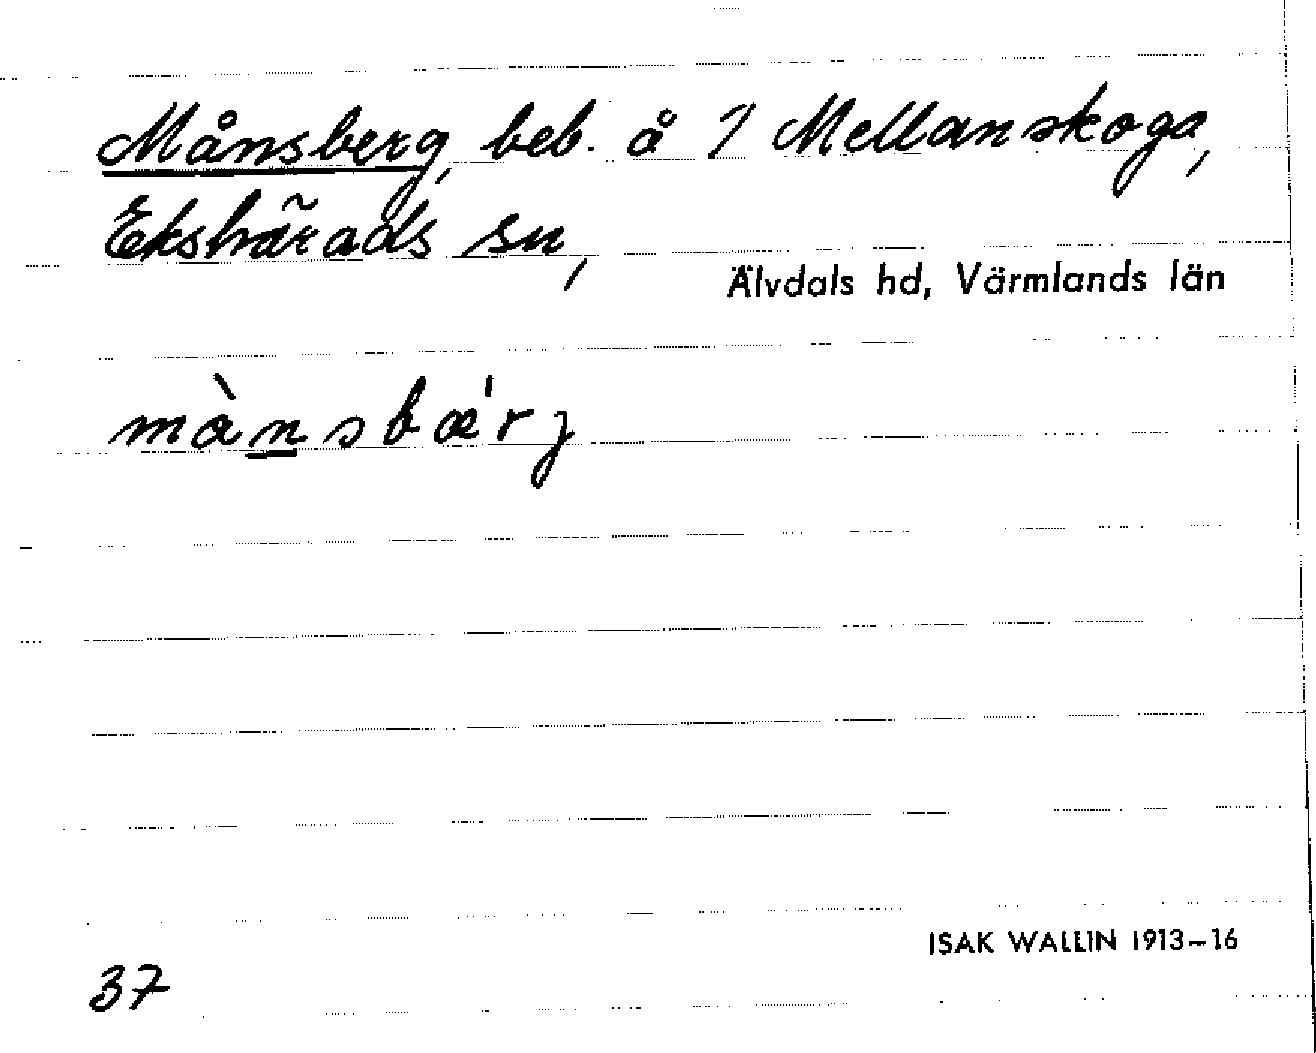 Månsberg, beb. å 1/1 Mellanskoga,
Ekshärads sn,
Älvdals hd, Värmlands län
mànsbæ'rj
ISAK WALLIN 1913–16
37